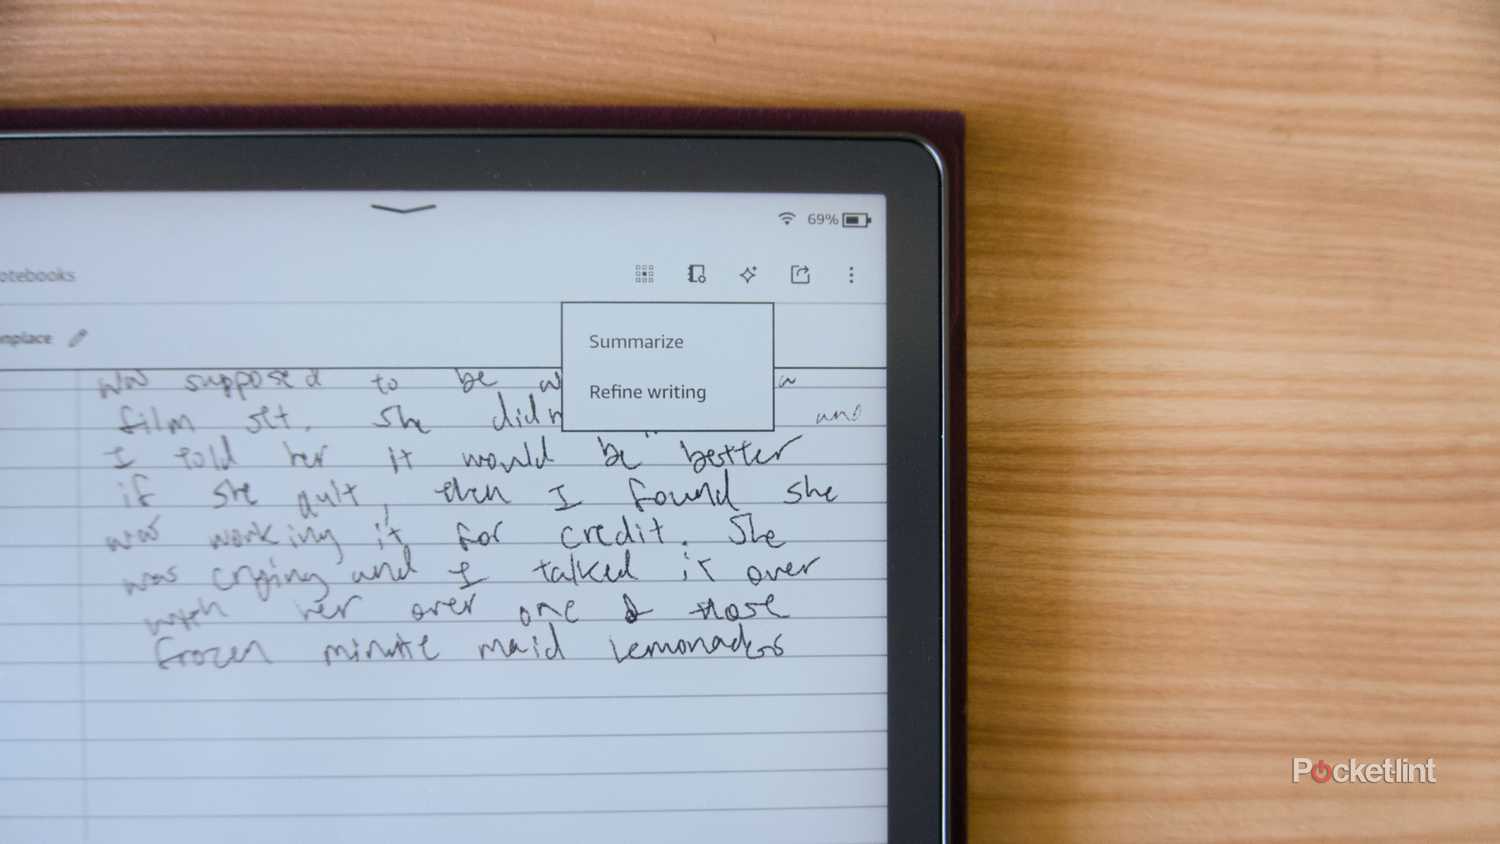 69%
otebooks
Summarize
nplace
Refine writing
was supposed to be
film set. She didn and
I told her it would be better
if she quit, then I found she
was working it for credit. She
was crying and I talked it over
with her over one of those
frozen minute maid lemonades
Pocket-lint